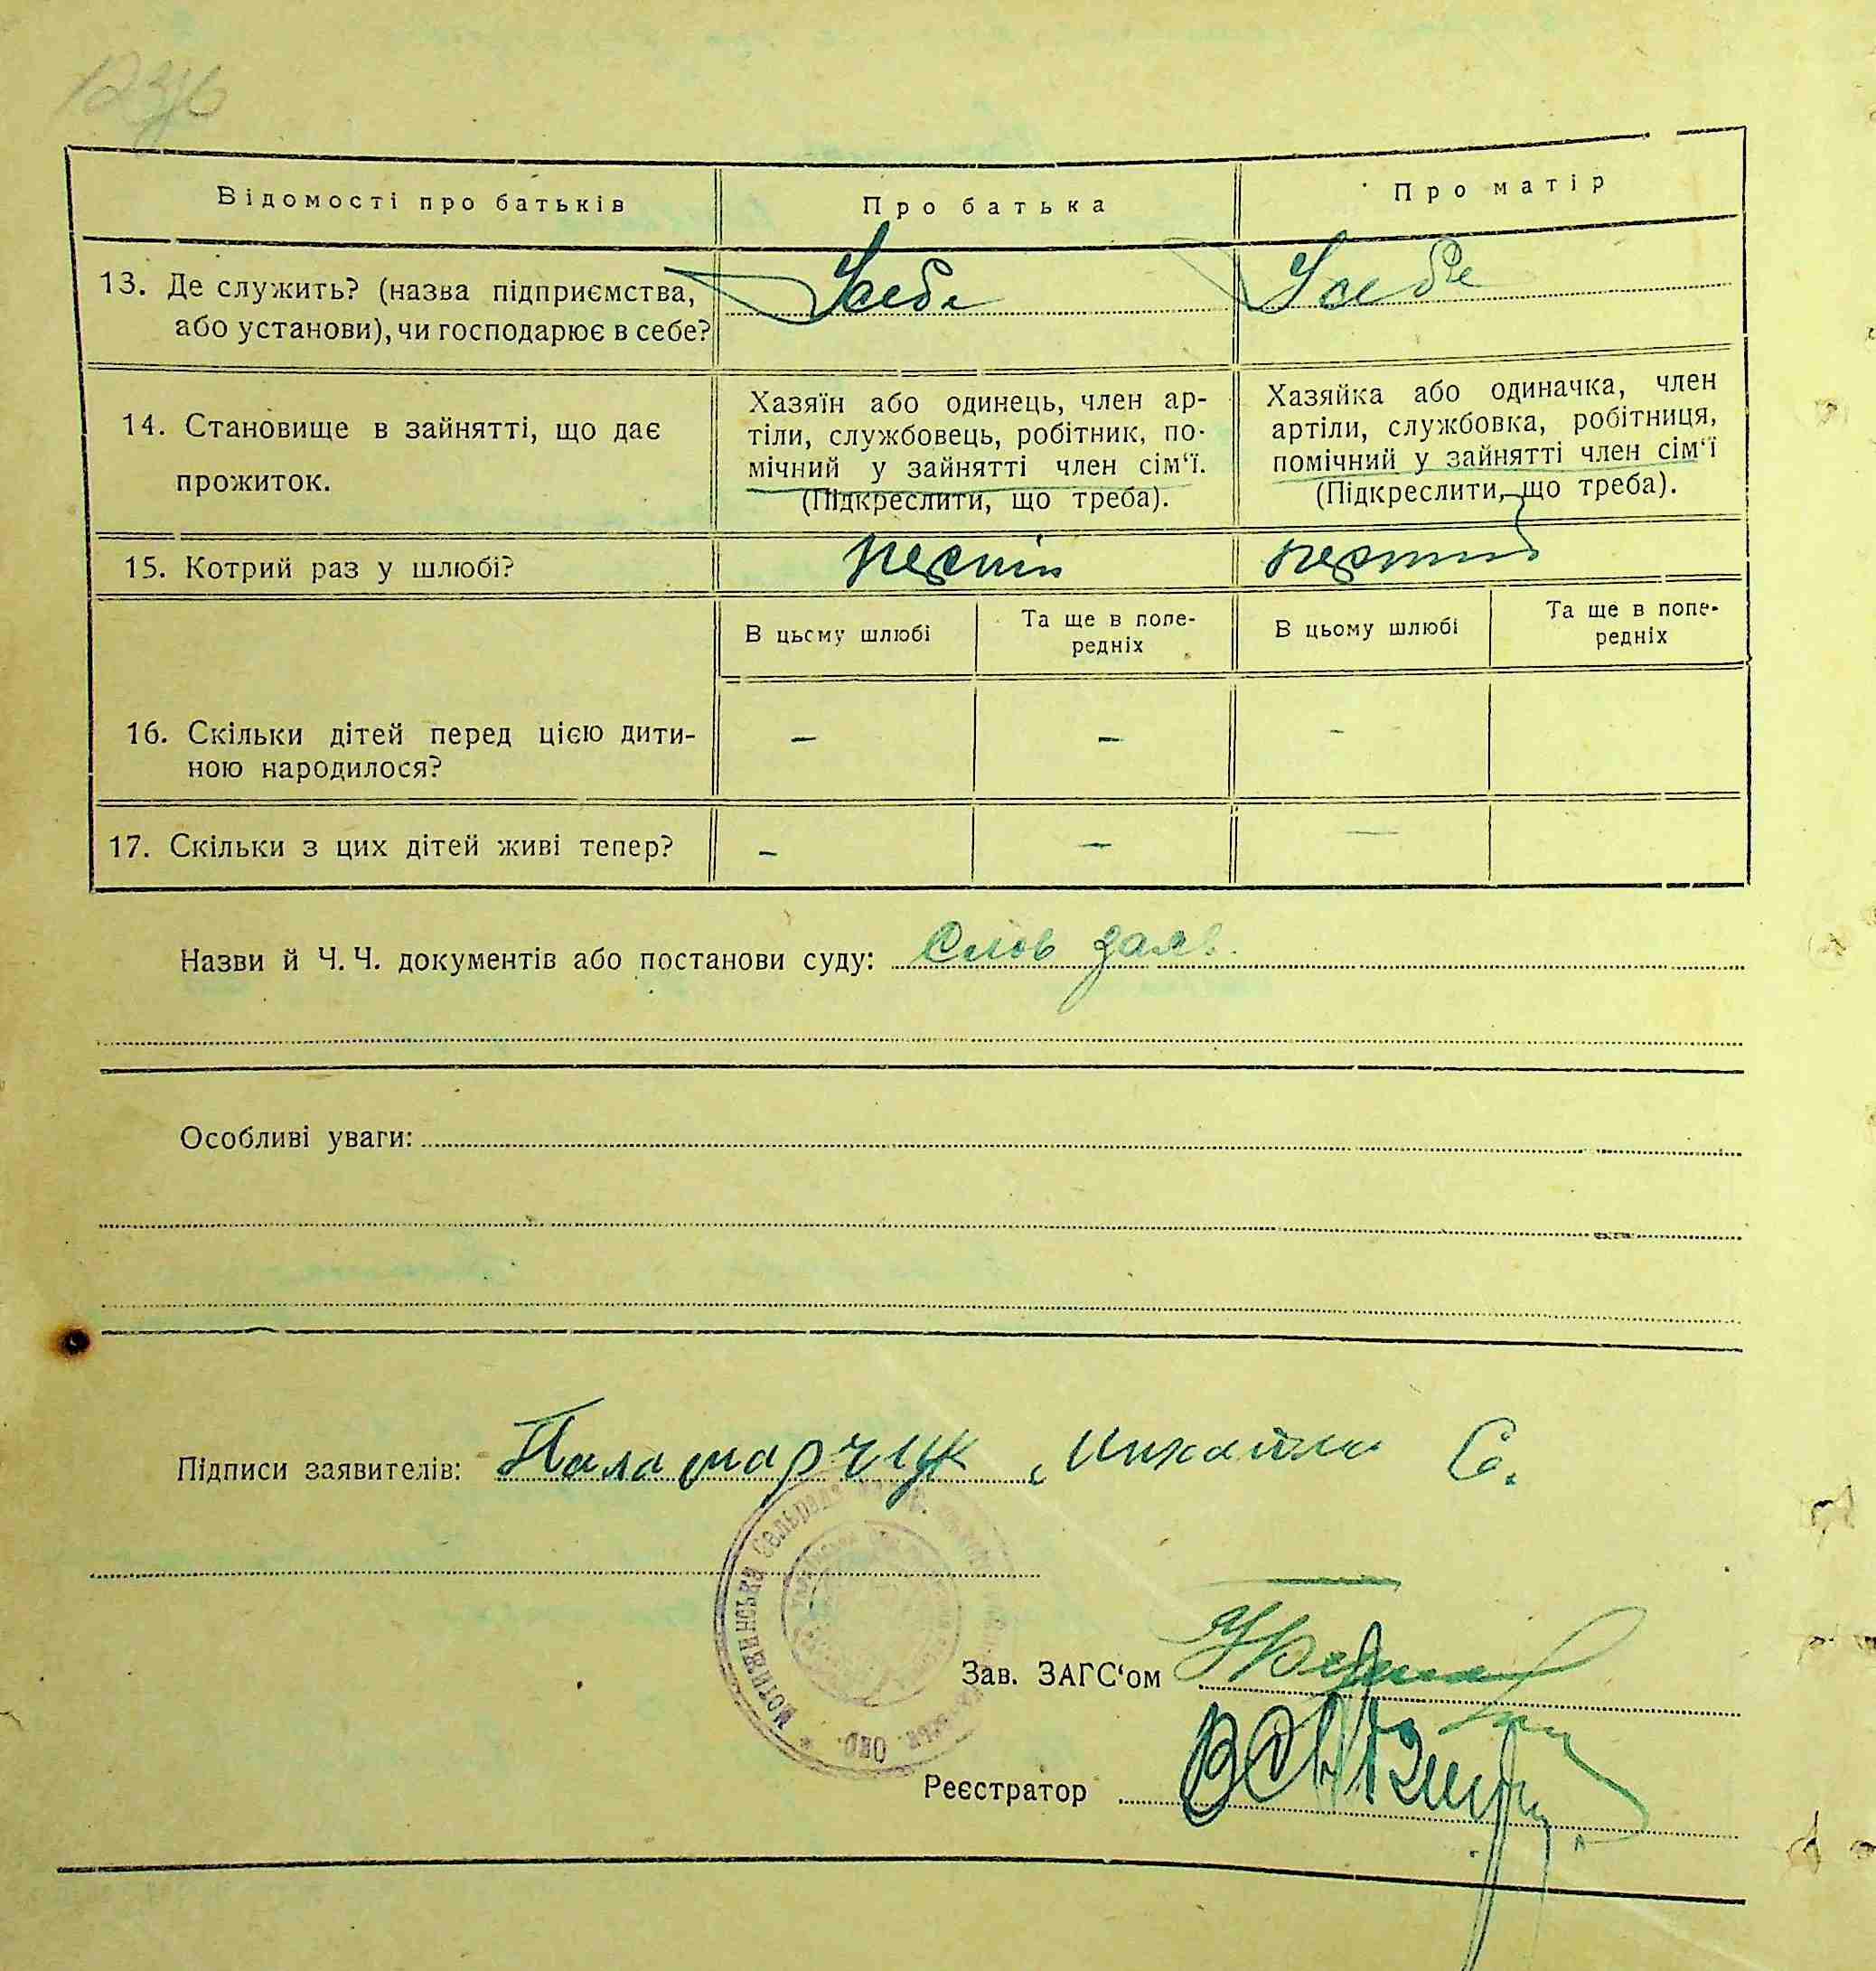 Відомості про батьків
Про батька
Про матір
13. Де служить? (назва підприємства,
або установи), чи господарює в себе?
У себе
У себе
14. Становище в зайнятті, що дає
прожиток.
Хазяїн або одинець, член ар-
тіли, службовець, робітник, по-
мічний у зайнятті член сім‘ї.
(Підкреслити, що треба).
Хазяйка або одиначка, член
артіли, службовка, робітниця,
помічний у зайнятті член сім‘ї
(Підкреслити, що треба).
15. Котрий раз у шлюбі?
В цьому шлюбі
Та ще в попе-
редніх
В цьому шлюбі
Та ще в попе-
редніх
16. Скільки дітей перед цією дити-
ною народилося?
–
–
–
17. Скільки з цих дітей живі тепер?
–
–
–
Назви й Ч. Ч. документів або постанови суду: Слов заяв.
Особливі уваги:
Підписи заявителів: Паламарчук Михайло С.
Мотижинська Сельрада
Зав. ЗАГС‘ом
Реєстратор